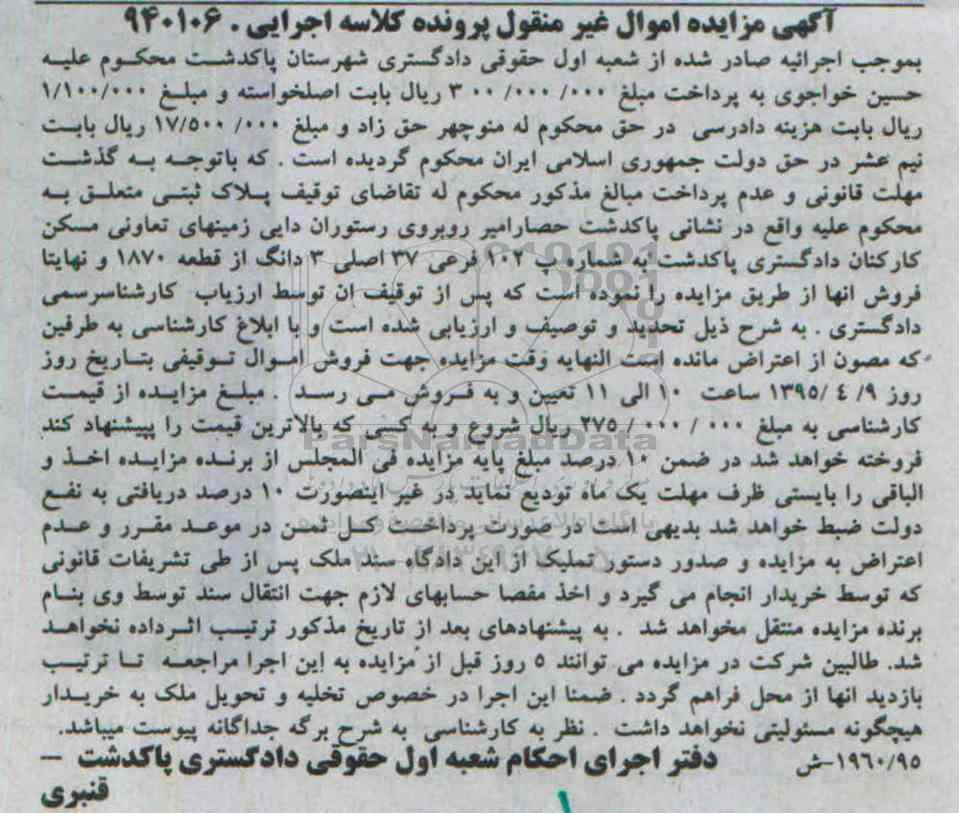 آگهی مزایده اموال غیر منقول پرونده کلاسه اجرایی . ۹۴۰۱۰۶
بموجب اجرائیه صادر شده از شعبه اول حقوقی دادگستری شهرستان پاکدشت محکوم علیه
حسین خواجوی به پرداخت مبلغ ۰۰۰/ ۰۰۰/ ۳۰۰ ریال بابت اصلخواسته و مبلغ ۱/۱۰۰/۰۰۰
ریال بابت هزینه دادرسی در حق محکوم له منوچهر حق زاد و مبلغ ۰۰۰/ ۱۷/۵۰۰ ریال بابت
نیم عشر در حق دولت جمهوری اسلامی ایران محکوم گردیده است . که باتوجه به گذشت
مهلت قانونی و عدم پرداخت مبالغ مذکور محکوم له تقاضای توقیف پلاک ثبتی متعلق به
محکوم علیه واقع در نشانی پاکدشت حصارامیر روبروی رستوران دایی زمینهای تعاونی مسکن
کارکنان دادگستری پاکدشت به شماره ب ۱۰۲ فرعی ۳۷ اصلی ۳ دانگ از قطعه ۱۸۷۰ و نهایتا
فروش انها از طریق مزایده را نموده است که پس از توقیف ان توسط ارزیاب کارشناسرسمی
دادگستری . به شرح ذیل تحدید و توصیف و ارزیابی شده است و با ابلاغ کارشناسی به طرفین
که مصون از اعتراض مانده است النهایه وقت مزایده جهت فروش اموال توقیفی بتاریخ روز
روز ۹/ ۴/ ۱۳۹۵ ساعت ۱۰ الی ۱۱ تعیین و به فروش می رسد . مبلغ مزایده از قیمت
کارشناسی به مبلغ ۰۰۰ / ۰۰۰ / ۲۷۵ ریال شروع و به کسی که بالاترین قیمت را پییشنهاد کند
فروخته خواهد شد در ضمن ۱۰ درصد مبلغ پایه مزایده فی المجلس از برنده مزایده اخذ و
الباقی را بایستی ظرف مهلت یک ماه تودیع نماید در غیر اینصورت ۱۰ درصد دریافتی به نفع
دولت ضبط خواهد شد بدیهی است در صورت پرداخت کل ثمن در موعد مقرر و عدم
اعتراض به مزایده و صدور دستور تملیک از این دادگاه سند ملک پس از طی تشریفات قانونی
که توسط خریدار انجام می گیرد و اخذ مفصا حسابهای لازم جهت انتقال سند توسط وی بنام
برنده مزایده منتقل مخواهد شد . به پیشنهادهای بعد از تاریخ مذکور ترتیب اثرداده نخواهد
شد. طالبین شرکت در مزایده می توانند ۵ روز قبل از مزایده به این اجرا مراجعه تا ترتیب
بازدید انها از محل فراهم گردد . ضمنا این اجرا در خصوص تخلیه و تحویل ملک به خریدار
هیچگونه مسئولیتی نخواهد داشت . نظر به کارشناسی به شرح برگه جداگانه پیوست میباشد.
۱۹۶۰/۹۵-ش دفتر اجرای احکام شعبه اول حقوقی دادگستری پاکدشت –
قنبری
ParsNamadData